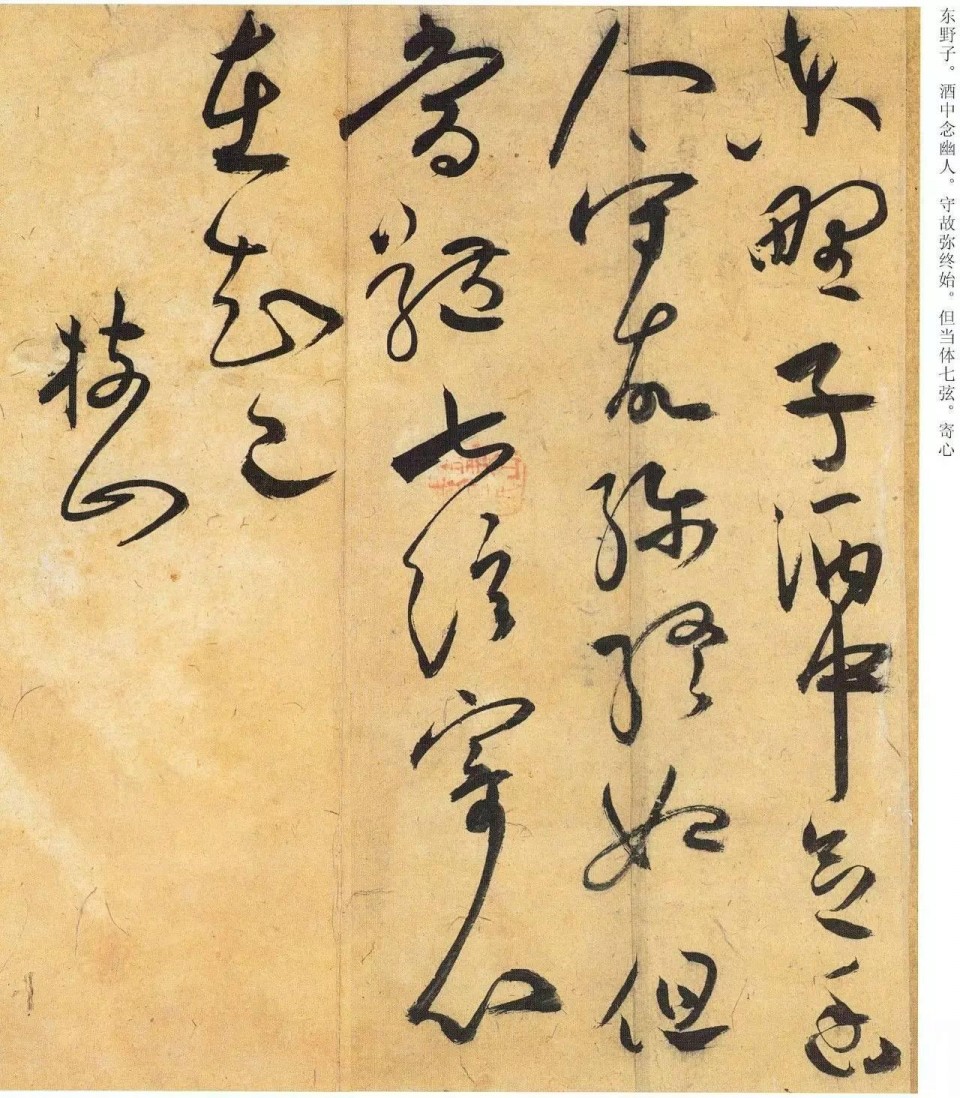 东野子。酒中念幽人。守故弥终始。但当体七弦。寄心
東野子酒中念幽
人守故彌終始但
當體七弦寄心
在知己
枝山